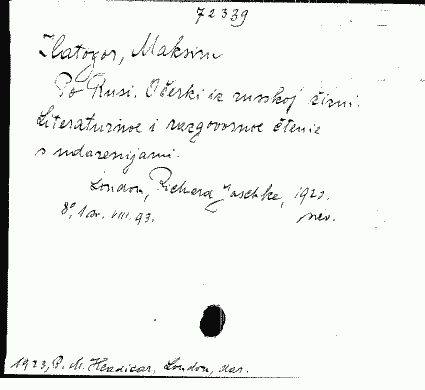 72339
Zlatogor, Maksim
Po Rusi. Očerki iz russkoj žizni.
Literaturnoe i razgovornoe čtenie
s udarenijami.
London, Richard Jaschke, 1923.
8°, 1 sv. VIII. 93. nev.
1923, P. M. London, dar.